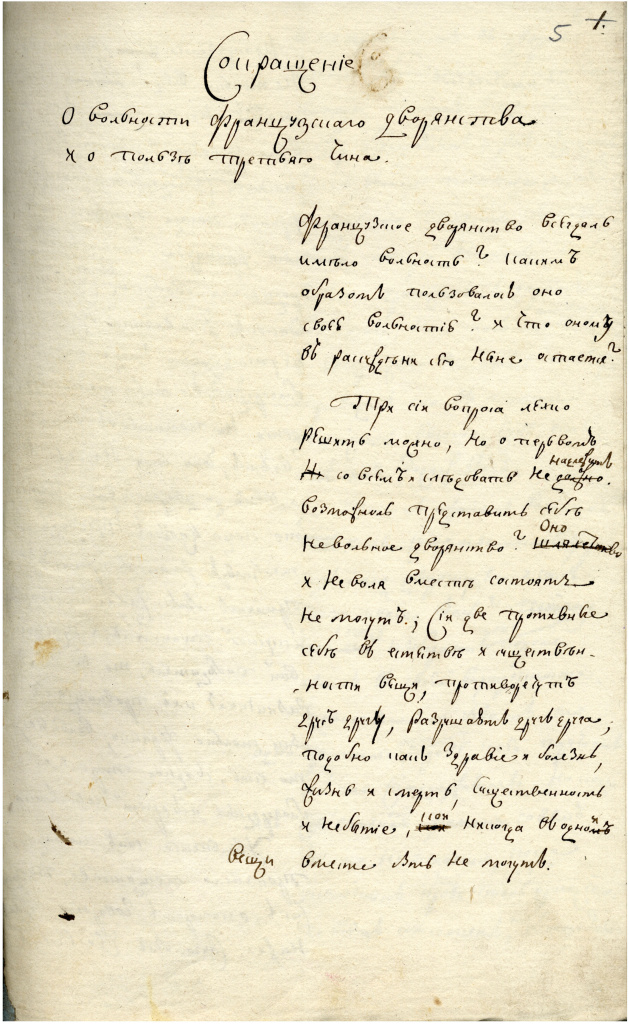 5
Сокращеніе
О вольности французскаго дворянства
и о пользѣ третьяго чина.
Французское дворянство всегдаль
имѣло вольность? какимъ
образомъ пользовалось оно
своею вольностію? и что оному
въ разсужденіи сего нынѣ остается?
Три сіи вопроса легко
рѣшить можно, но о первомъ
надлежитъ
со всемъ и слѣдовать не должно.
возможноль представить себѣ
Оно
невольное дворянство? шляхетство
и неволя вместѣ состоять
не могутъ.; Сіи две противные
себѣ въ естествѣ и существен-
ности вещи, противоречутъ
другъ другу, разрушаютъ другъ друга,
подобно какъ здравіе и болезнь,
жизнь и смерть, существенность
кои
и небытіе, кои никогда въ одной
вещи вместе быть не могутъ.